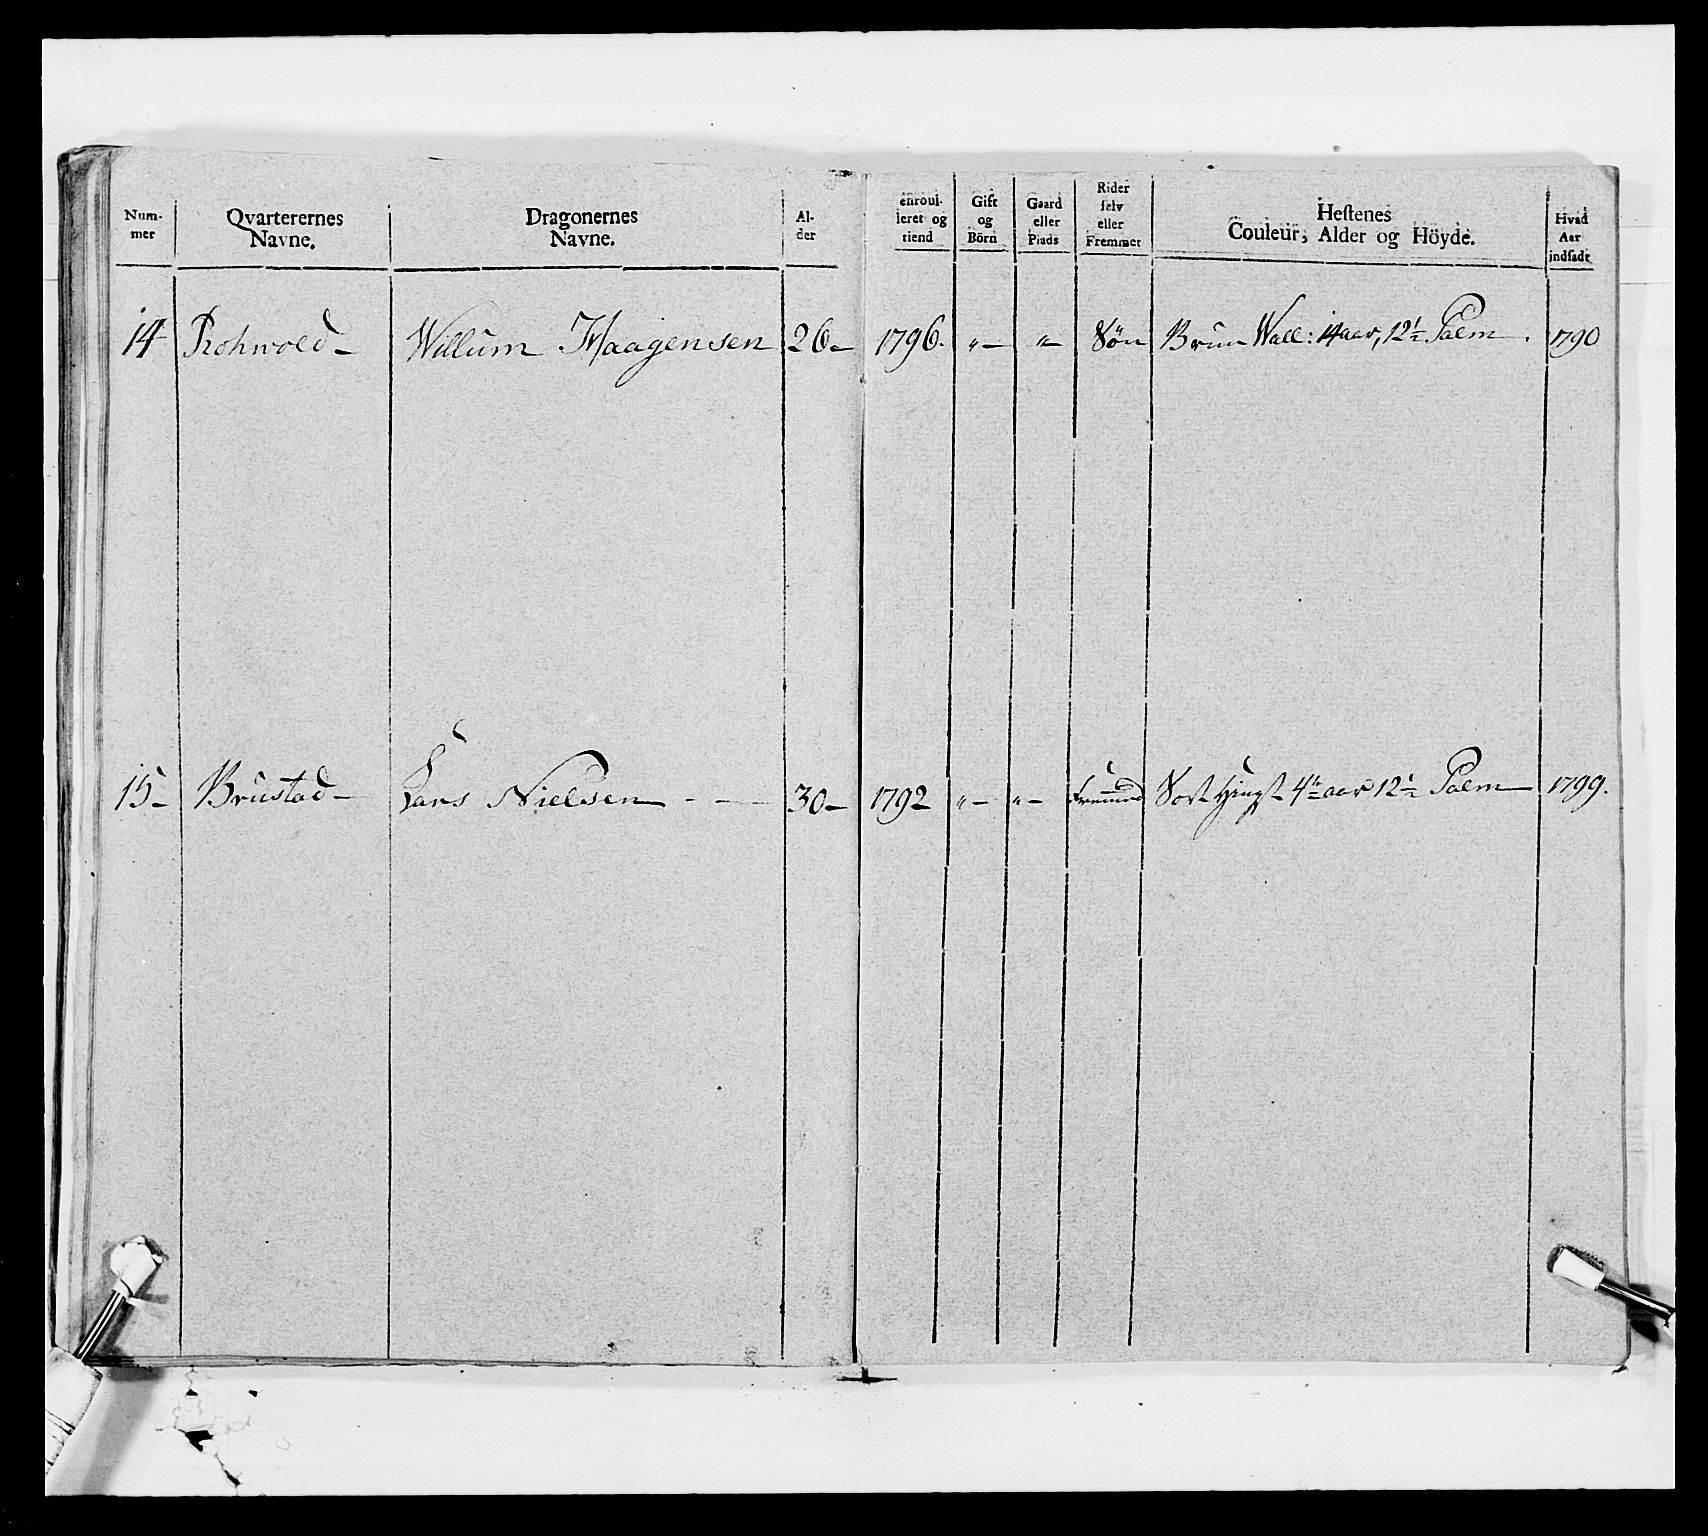 Num-
mer
Qvarterernes
Navne.
Dragonernes
Navne.
Al-
der
enroul-
leret og
tiend
Gift
og
Börn
Gaard
eller
Plads
Rider
selv
eller
Fremmet
Hestenes
Couleur, Alder og Höyde.
Hvad
Aar
indsadt
14 Rohwold- Willum Haagensen 26- 1796. "- "- Sön Brun Wall: 14 aar, 12½ Palm. 1790
15- Brustad- Lars Nielsen - - 30- 1792 "- "- Fremmed Sort Hingst 4 aar 12½ Palm 1799.